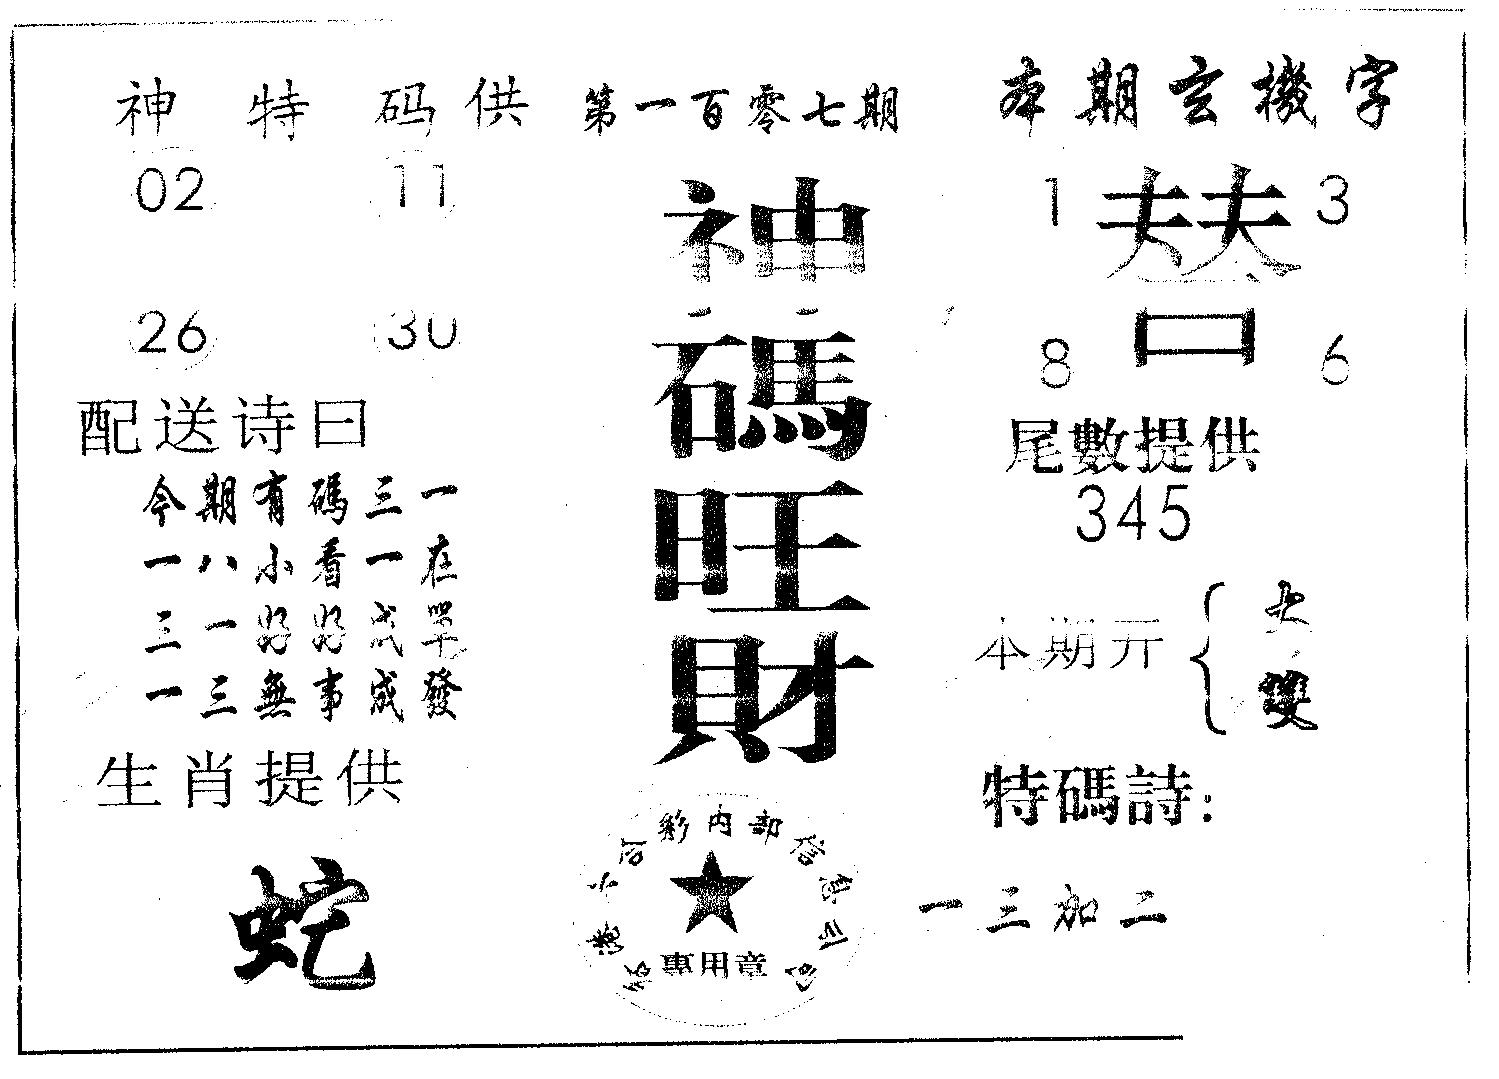 神特码供
02 11
26 30
配送诗曰
今期有碼三一
一八小看一在
三一好好成單
一三無事成發
生肖提供
蛇
第一百零七期
神碼旺財
六合彩内部信息公司
專用章
本期玄機字
1 替 3
8 6
尾數提供
345
本期开
大
雙
特碼詩:
一三加二